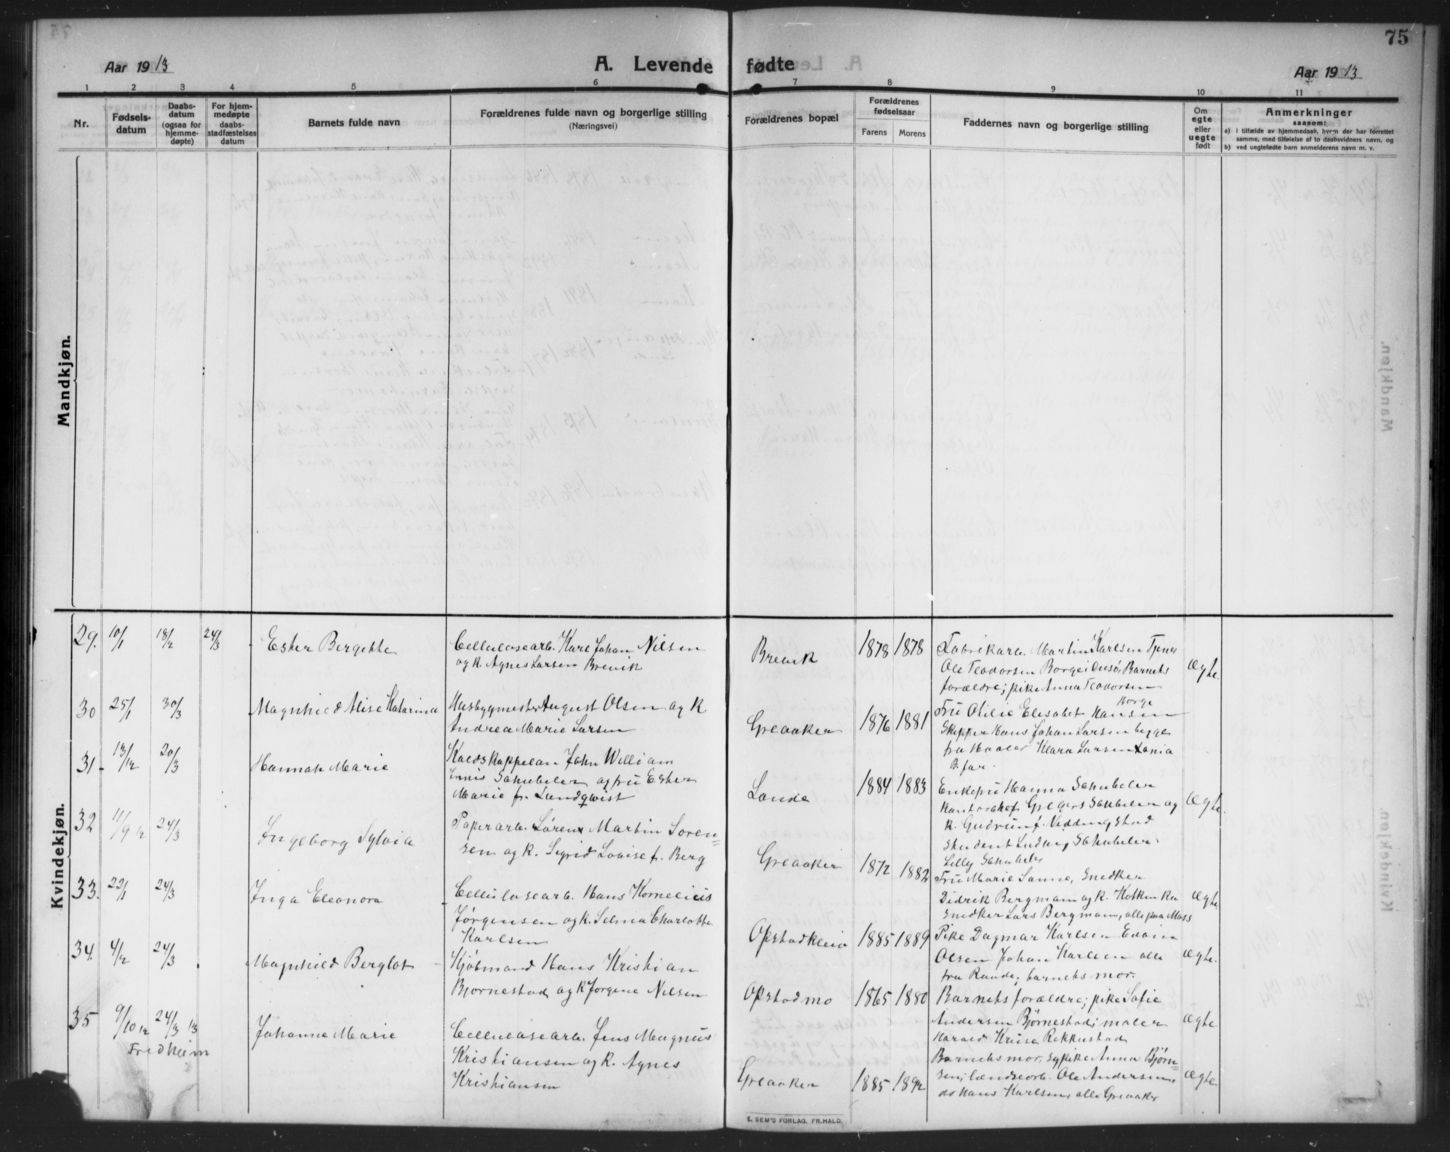 75
Aar 1913
A. Levende fødte
Aar 1913
1 2 3 4 5 6 7 8 9 10 11
Nr.
Fødsels-
datum
Daabs-
datum
(ogsaa for
hjemme-
døpte)
For hjem-
medøpte
daabs-
stadfæstelses
datum
Barnets fulde navn
Forældrenes fulde navn og borgerlige stilling
(Næringsvei)
Forældrenes bopæl
Forældrenes
fødselsaar
Farens Morens
Faddernes navn og borgerlige stilling
Om
egte
eller
uegte
født
Anmerkninger
saasom:
a) i tilfælde av hjemmedaab, hvem der har forrettet
samme, med tilføielse af to daabsvidners navn, og
b) ved uegtefødte barn anmelderens navn m. v.
Mandkjøn.
Kvindekjøn.
29. 10/1 18/2 24/3 Ester Bergette
Cellulosearb. Karl Johan Nilsen
og k. Agnes Larsen Brevik
Brevik 1878 1878
Fabrikarb. Martin Karlsen Tjenes
Ole Teodorsen Borge Barnets
forældre; pike Anna Teodorsen
Borge
Ægte
30 25/1 30/3 Magnhild Alise Katarina
Husbygmester August Olsen og k
Andrea Marie Larsen
Greaaker 1876 1881
Fru Otilie Elisabet Hansen
Skipper Hans Johan Larsen begge
fra Klara Larsen
31 13/12 20/3 Hannah Marie
Kaldskappelan John William
Schübeler og fru Ester
Marie f. Lundqwist
Lande 1884 1883
Enkefru Hanna Schübeler
Gregers Schübeler og
k. Gudrun f. Neddingstad
Student Ludvig Schübeler
Lilly Schübeler
Ægte
32 11/9 12 24/3 Ingeborg Sylvia
Papirarb. Søren Martin Soren-
sen og k. Sigrid Lovise f. Berg
Greaaker 1872 1882
Fru Marie Sanne, Snedker
Didrik Bergman og k.
Snedker Lars Bergmann, alle fra Moss
Ægte
33. 22/1 24/3 Inga Eleonora
Cellulosearb. Hans Kornelius
Jørgensen og k. Selma Charlotte
Karlsen
Opstadkleiv 1885 1889
Pike Dagmar Karlsen
Olsen Johan Karlsen alle
fra Raade; barnets mor.
Ægte.
34 4/2 24/3 Magnhild Bergljot
Kjøbmand Hans Kristian
Bjørnestad og k Jørgine Nilsen
Opstadmo 1865 1880
Barnets forældre; pike Sofie
Andersen Bjørnestad; maler
Harald Kruse Rekkustad
Ægte
35 9/10 12 24/3 13 Johanne Marie
Fridheim
Cellulosearb. Jens Magnus
Kristiansen og k. Agnes
Kristiansen
Greaaker 1885 1892
Barnets mor, sypike Anna Bjørn-
sen; Ole Andersen,
Hans Karlsen, alle Greaaker
Ægte
E. SEM'S FORLAG, FR.HALD.